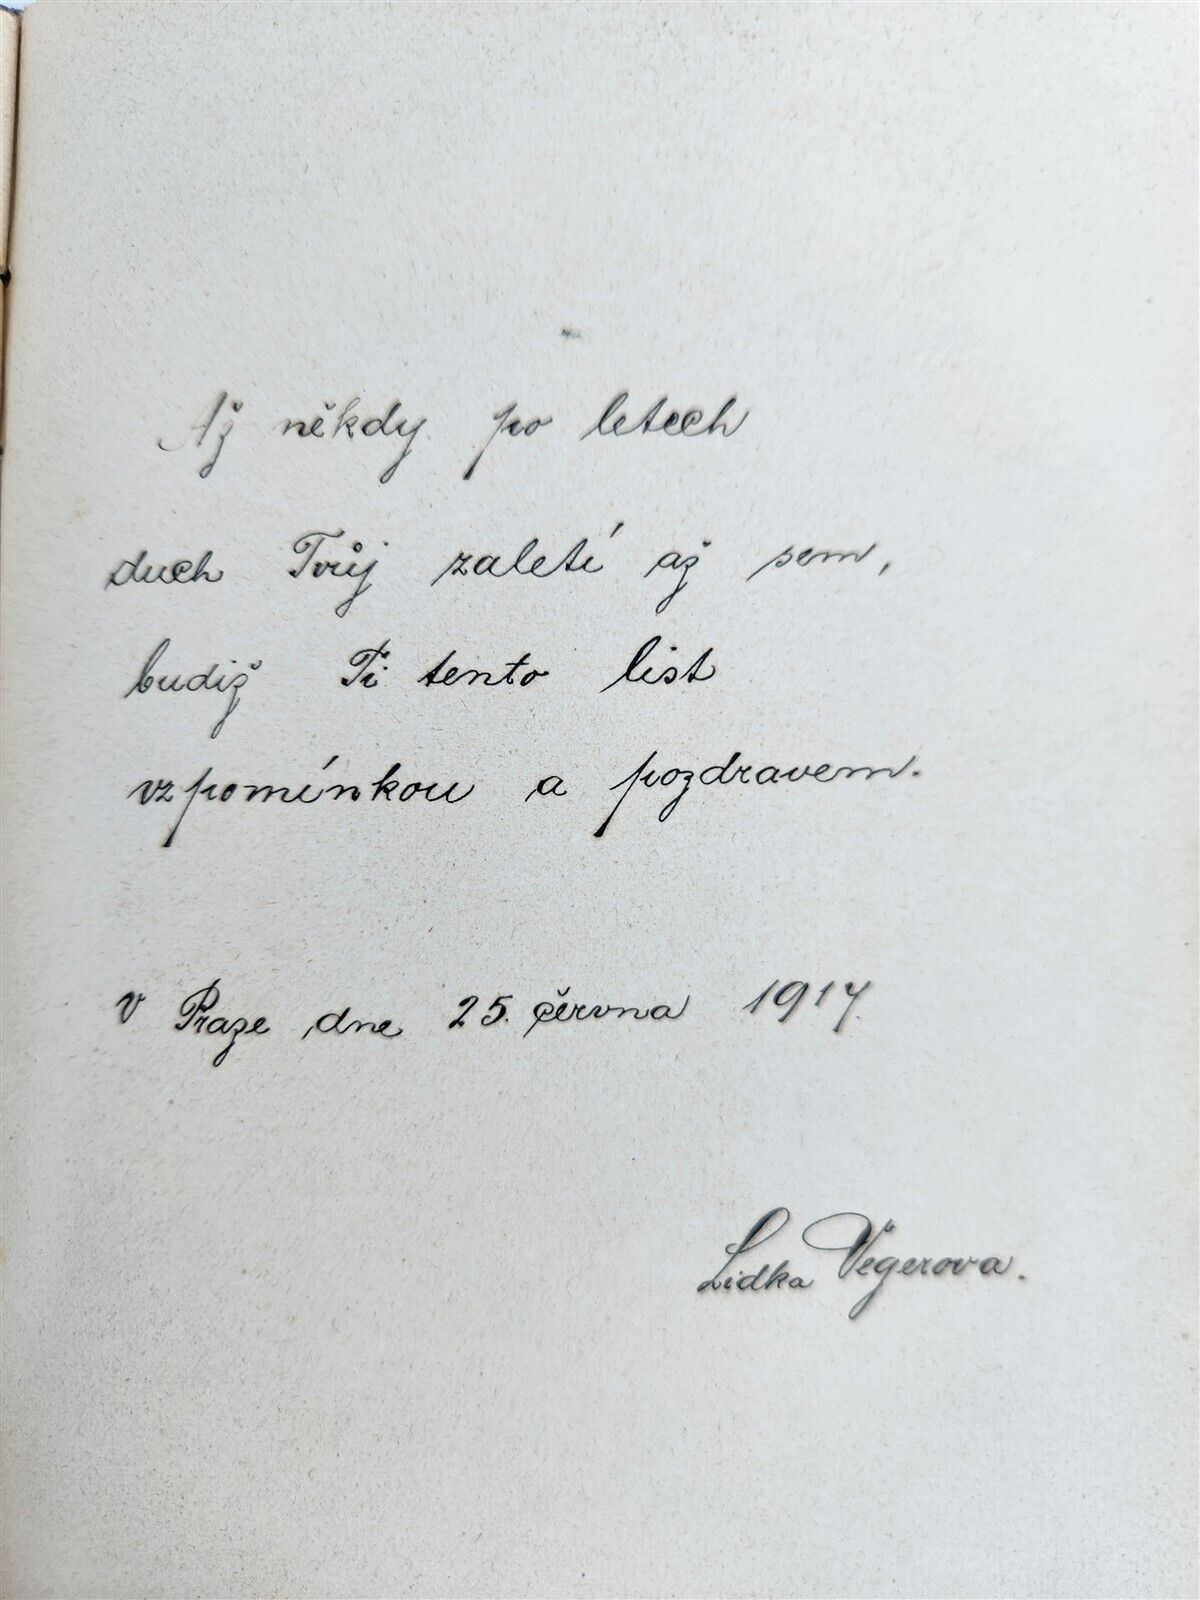 Až někdy po letech
duch Tvůj zaletí až sem,
budiž Ti tento list
vzpomínkou a pozdravem.
v Praze dne 25. června 1917.
Lidka Végerova.